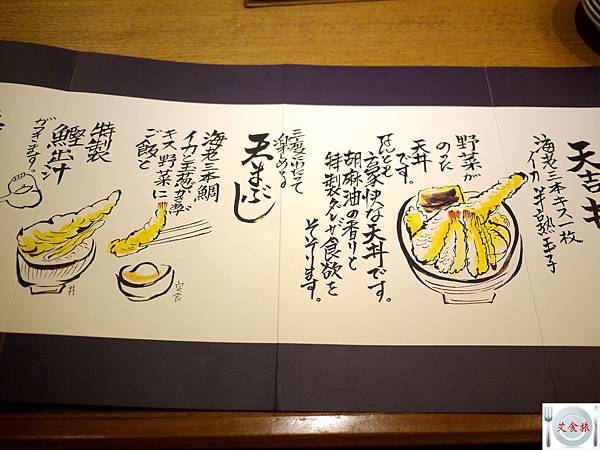 天吉丼
海老二本キス一枚
イカ半熟玉子
野菜が
のった
天丼
です。
なんとも
豪快な天丼です。
胡麻油の香りと
特製タレが食欲を
そそります。
天まぶし
楽しめる
海老二本鯛
イカと玉葱
キス野菜に
ご飯と
特製
鰹出汁
がつきます。
丼
定食
艾食旅